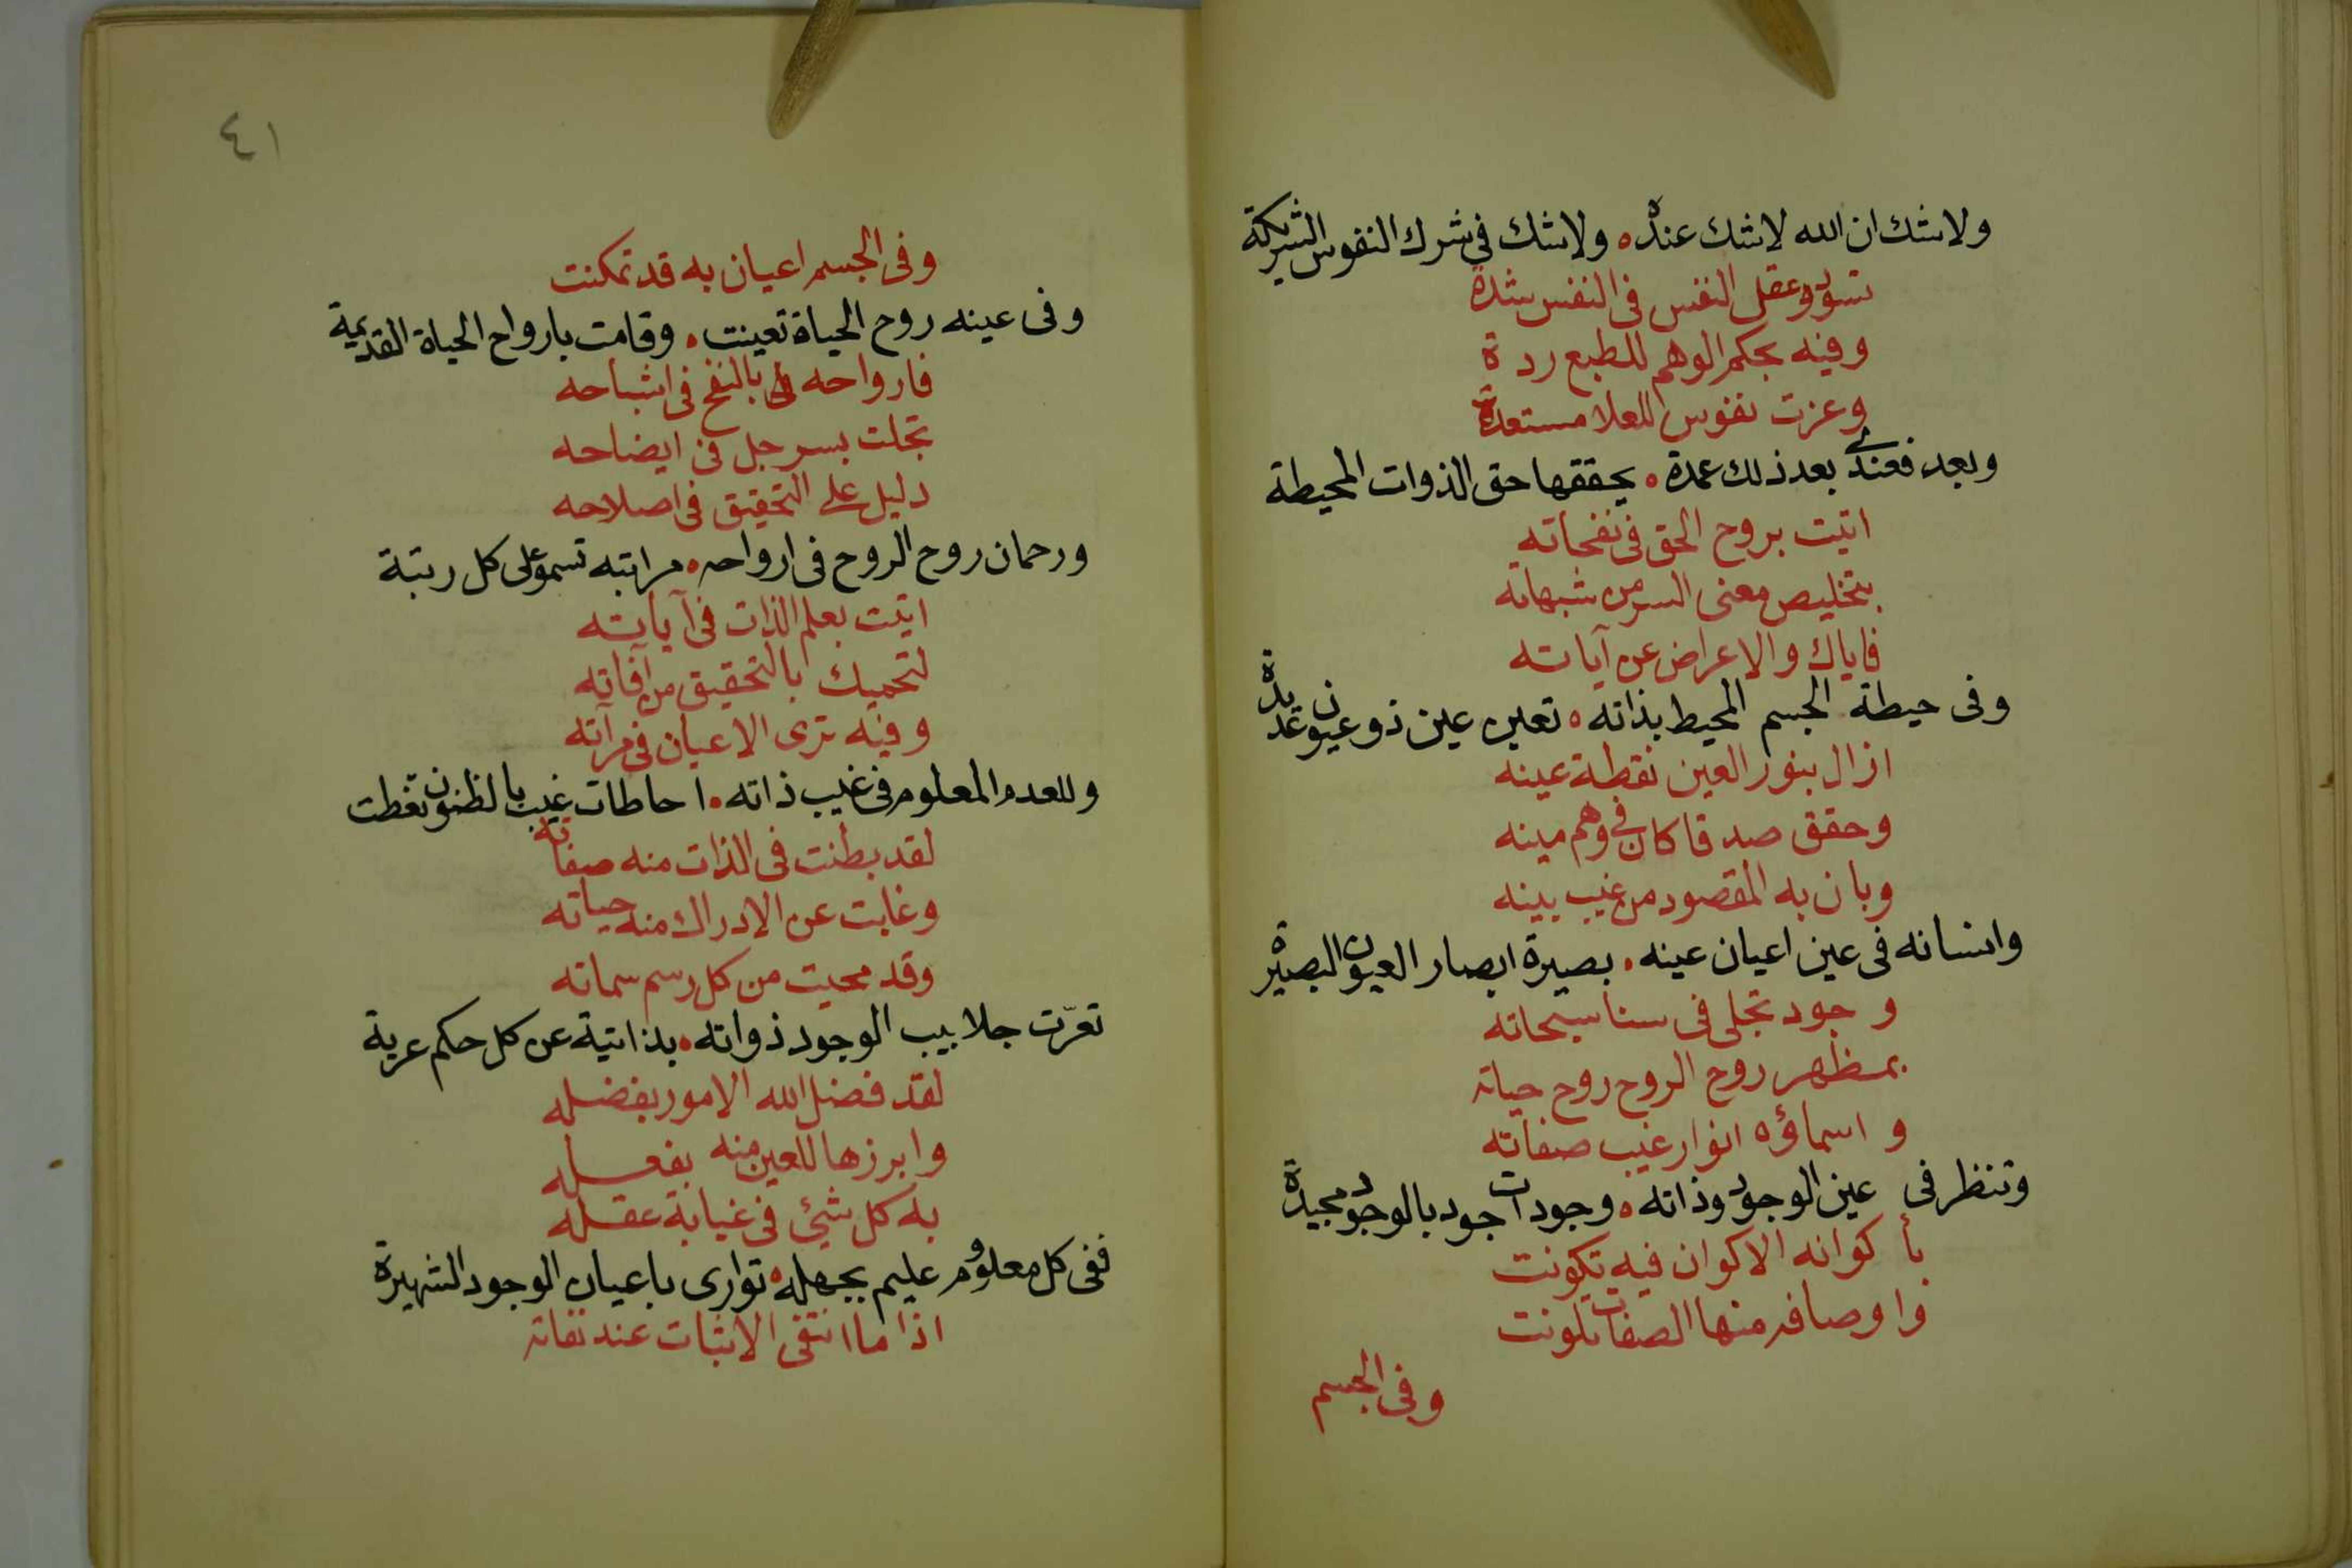 ولاشك ان الله لاشك عنده ۰ ولاشك فى شرك النفوس الشريكة
تسود وعقل النفس فى النفس شدة
وفيه بحكم الوهم للطبع ردة
وعزت نفوس للعلا مستعدة
وبعد فعندى بعد ذلك عمدة ۰ يحققها حق الذوات المحيطة
اتيت بروح الحق فى نفحاته
بتخليص معنى السر من شبهاته
فاياك والاعراض عن آياته
وفى حيطة الجسم المحيط بذاته ۰ تعين عين ذو عيون عديدة
ازال بنور العين نقطة عينه
وحقق صدقا كان فى وهم مينه
وبان به المقصود من غيب بينه
وانسانه فى عين اعيان عينه ۰ بصيرة ابصار العيون البصيرة
وجود تجلى فى سنا سبحاته
بمظهر روح الروح روح حياته
و اسماؤه انوار غيب صفاته
وتنظر فى عين الوجود وذاته ۰ وجودات جود بالوجود مجيدة
بأكوانه الاكوان فيه تكونت
واوصافه منها الصفات تلونت
وفى الجسم
٤١
وفى الجسم اعيان به قد تمكنت
وفى عينه روح الحياة تعينت ۰ وقامت بارواح الحياة القديمة
فارواحه بالنفخ فى اشباحه
تجلت بسر جل فى ايضاحه
دليل على التحقيق فى اصلاحه
ورحمان روح الروح فى ارواحه ۰ مراتبه تسمو على كل رتبة
اتيت بعلم الذات فى آياته
لتحميك بالتحقيق من آفاته
وفيه ترى الاعيان فى مرآته
وللعدم المعلوم فى غيب ذاته ۰ احاطات غيب بالظنون تغطت
لقد بطنت فى الذات منه صفاته
وغابت عن الادراك منه حياته
وقد محيت من كل رسم سماته
تعرّت جلابيب الوجود ذواته ۰ بذاتية عن كل حكم عرية
لقد فضل الله الامور بفضله
وابرزها للعين منه بفعله
به كل شيئ فى غيابة عقله
ففى كل معلوم عليم بجهله ۰ توارى باعيان الوجود الشهيرة
اذا ما انتفى الاثبات عند نفاته